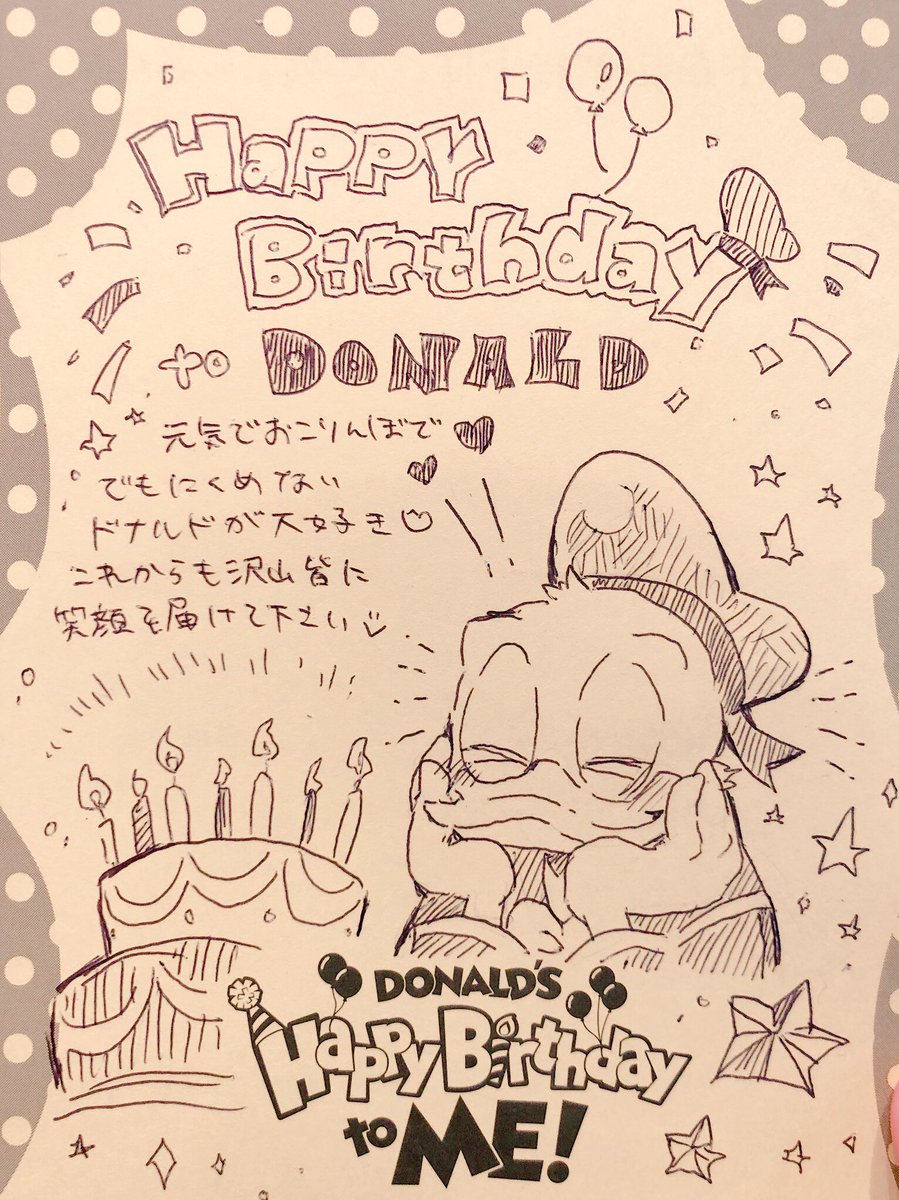 Happy
Birthday
to DONALD
元気でおこりんぼで
でもにくめない
ドナルドが大好き
これからも沢山皆に
笑顔を届けて下さい
DONALD'S
Happy Birthday
to ME!